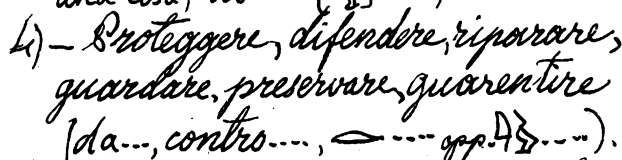 una cosa,
4) – Proteggere, difendere, riparare,
guardare, preservare, guarentire
(da..., contro...., ..... opp. ......).